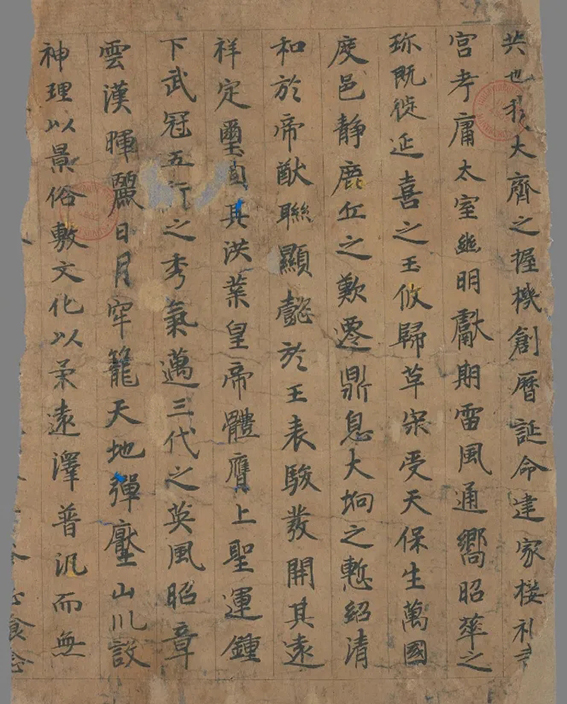 我大齊之握機創曆誕命建家接礼
宮考庸太室幽明獻期雷風通嚮昭華之
珎既徙延喜之玉攸歸革宋受天保生萬國
度邑静鹿丘之歎遷鼎息大坰之慙紹清
和於帝猷聯顯懿於王表駿發開其遠
祥定璽固其洪業皇帝體膺上聖運鍾
下武冠五行之秀氣邁三代之英風昭章
雲漢暉麗日月牢籠天地彈壓山川設
神理以景俗敷文化以柔遠澤普汜而無